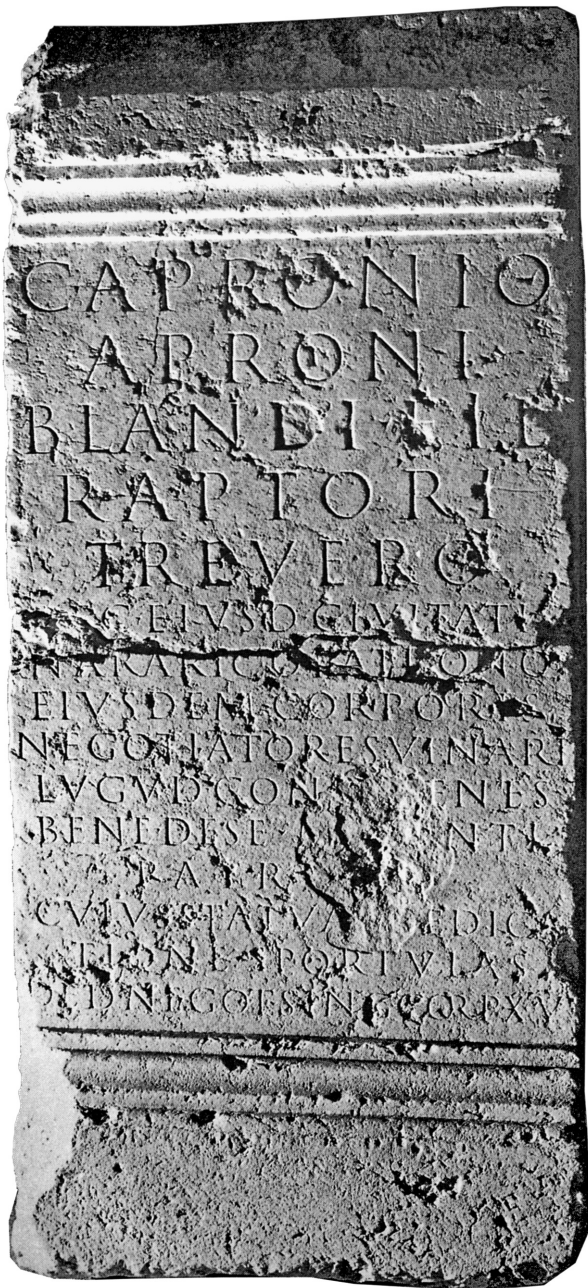 C APRONIO
APRONI
BLANDI FIL
RAPTORI
TREVERO
EIVSD CIVITATI
N ARARICO PATRONO
EIVSDEM CORPORIS
NEGOTIATORES VINARI
LVGVD CON ENES
BENE DE SE NTI
PATR
CVIVS STATVA DEDIC
TIONE SPORTVLAS
NEGOT SING CORP X V